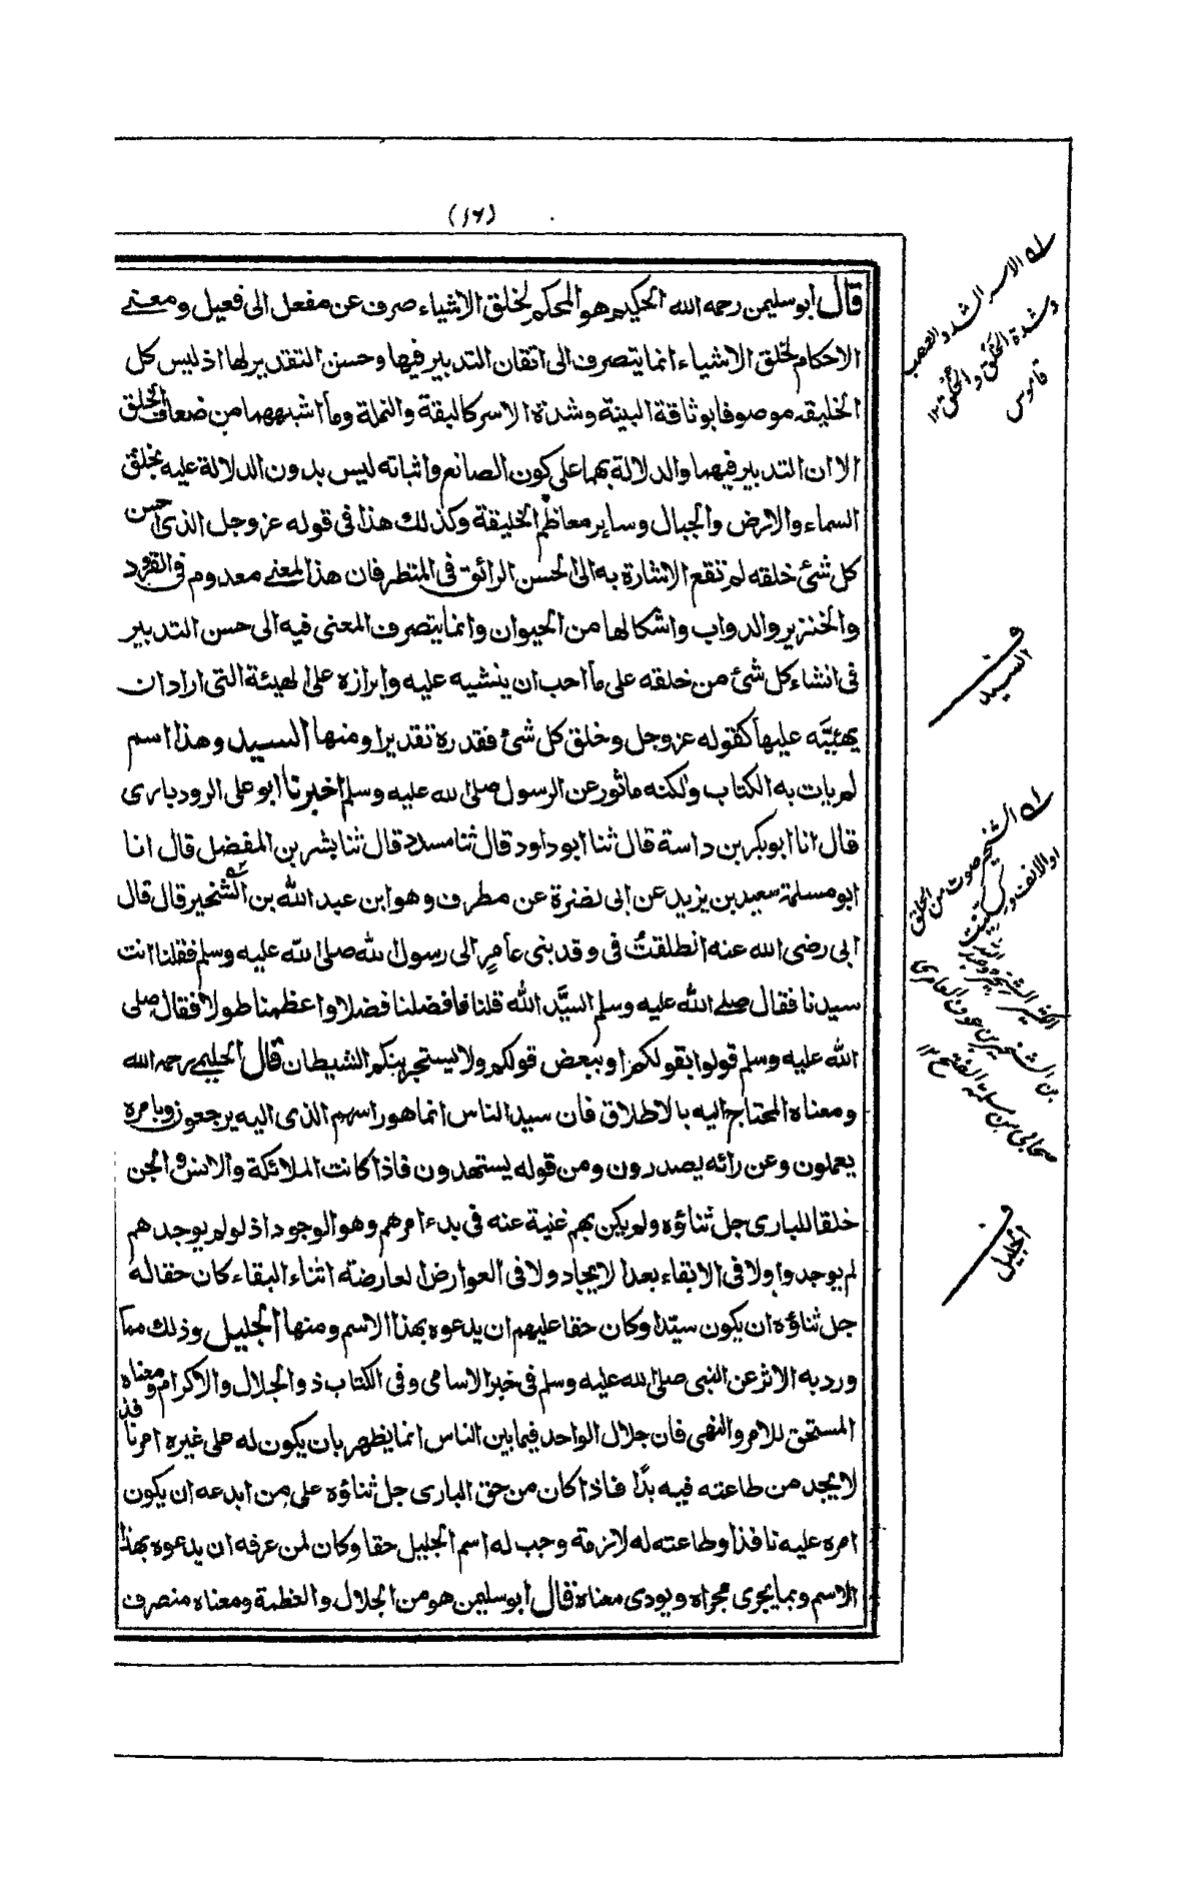 (١٦)
قال ابو سليمن رحمه الله الحكيم هو المحكم لخلق الاشياء صرف عن مفعل الى فعيل ومعنے
الاحكام لخلق الاشياء انما يتصرف الى اتقان التدبير فيها وحسن التقدير لها اذ ليس كل
الخليقه موصوفا بوثاقة البنية وشدة الاسر كالبقة والنملة وما اشبههما من ضعاف الخلق
الا ان التدبير فيهما والدلالة بهما على كون الصانع واثباته ليس بدون الدلالة عليه بخلق
السماء والارض والجبال وساير معاظم الخليقة وكذلك هذا فى قوله عز وجل الذى احسن
كل شئ خلقه لم تقع الاشارة به الى الحسن الرائق فى المنظر فان هذا المعنے معدوم فى القرد
والخنزير والدواب واشكالها من الحيوان وانما يتصرف المعنى فيه الى حسن التدبير
فى انشاء كل شئ من خلقه على ما احب ان ينشيه عليه وابرازه على الهيئة التى اراد ان
يهيّئه عليها كقوله عز وجل وخلق كل شئ فقدره تقديرا ومنها السيد وهذا اسم
لم يات به الكتاب ولكنه ماثور عن الرسول صلى الله عليه وسلم اخبرنا ابو على الرودبارى
قال انا ابو بكر بن داسة قال ثنا ابو داود قال ثنا مسدد قال ثنا بشر بن المفضل قال انا
ابو مسلمة سعيد بن يزيد عن ابى نضرة عن مطرف وهو ابن عبد الله بن الشخير قال قال
ابى رضى الله عنه انطلقتُ فى وفد بنى عامرٍ الى رسول الله صلى الله عليه وسلم فقلنا انت
سيدنا فقال صلے الله عليه وسلم السيَّد الله قلنا فافضلنا فضلا واعظمنا طولا فقال صلى
الله عليه وسلم قولوا بقولكم او ببعض قولكم ولا يستجرينكم الشيطان قال الحليمے رحمه الله
ومعناه المحتاج اليه بالاطلاق فان سيد الناس انما هو راسهم الذى اليه يرجعون وبامره
يعملون وعن رائه يصدرون ومن قوله يستهدون فاذا كانت الملائكة والانس والجن
خلقا للبارى جل ثناؤه ولم يكن بهم غنية عنه فى بدء امرهم وهو الوجود اذ لو لم يوجدهم
لم يوجدوا ولا فى الابقاء بعد الايجاد ولا فى العوارض العارضة اثناء البقاء كان حقا له
جل ثناؤه ان يكون سيّدا وكان حقا عليهم ان يدعوه بهذا الاسم ومنها الجليل وذلك مما
ورد به الاثر عن النبى صلى الله عليه وسلم فى خبر الاسامى وفى الكتاب ذو الجلال والاكرام ومعناه
المستحق للامر والنهى فان جلال الواحد فيما بين الناس انما يظهر بان يكون له على غيره امر نافذ
لا يجد من طاعته فيه بدًّا فاذا كان من حق البارى جل ثناؤه على من ابدعه ان يكون
امره عليه نافذا وطاعته له لازمة وجب له اسم الجليل حقا وكان لمن عرفه ان يدعوه بهذا
الاسم وبما يجرى مجراه ويودى معناه قال ابو سليمن هو من الجلال والعظمة ومعناه منصرف
له الاسر الشد والعصب
وشدة الخَلق والخُلق
قاموس ١٢
ف
السيد
له الشخير صوت من الحلق
او الانف
بن الشخير بن عوف العامرى
صحابى من مسلمة الفتح ١٢
ف
الجليل